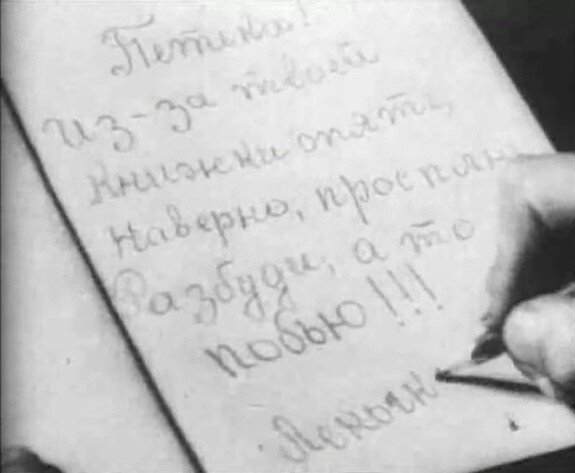 Петька!
из-за твоей
книжки опять,
наверно, просплю
Разбуди, а то
побью!!!